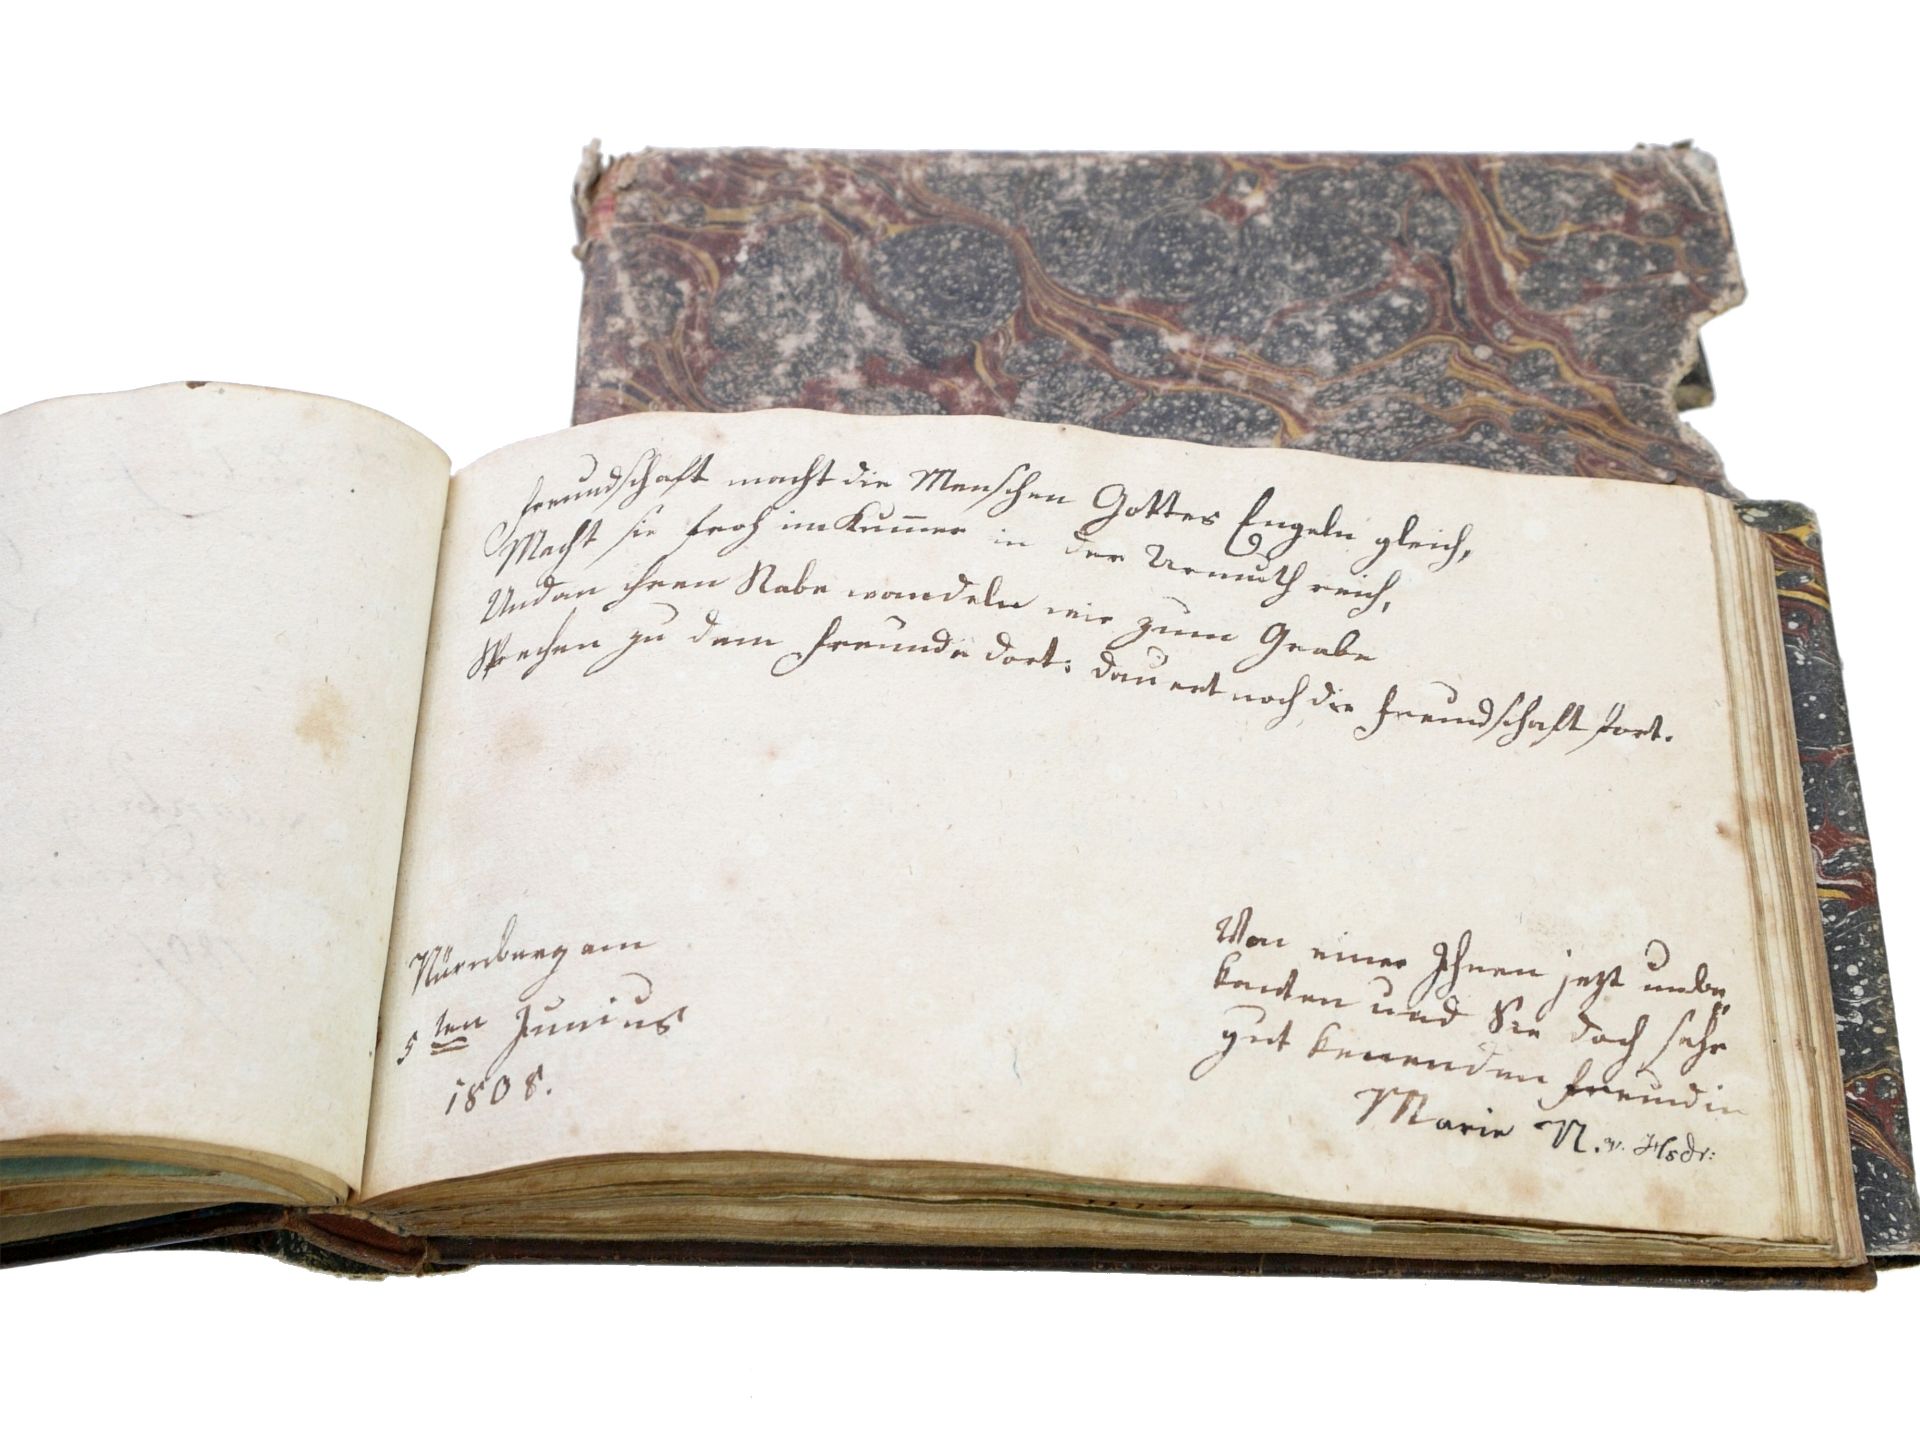 Freundschaft macht die Menschen Gottes Engeln gleich,
Macht sie froh im Kum̅er in der Armuth reich,
Und an ihren Stabe wandeln wir zum Grabe
Sprechen zu dem Freunde dort: dauert noch die Freundschaft fort.
Nürnberg am
5ten Junius
1808.
Von einer Ihnen jetzt unbe
kanten und Sie doch sehr
gut kennenden Freundin
Marie N. v. Hsdr: